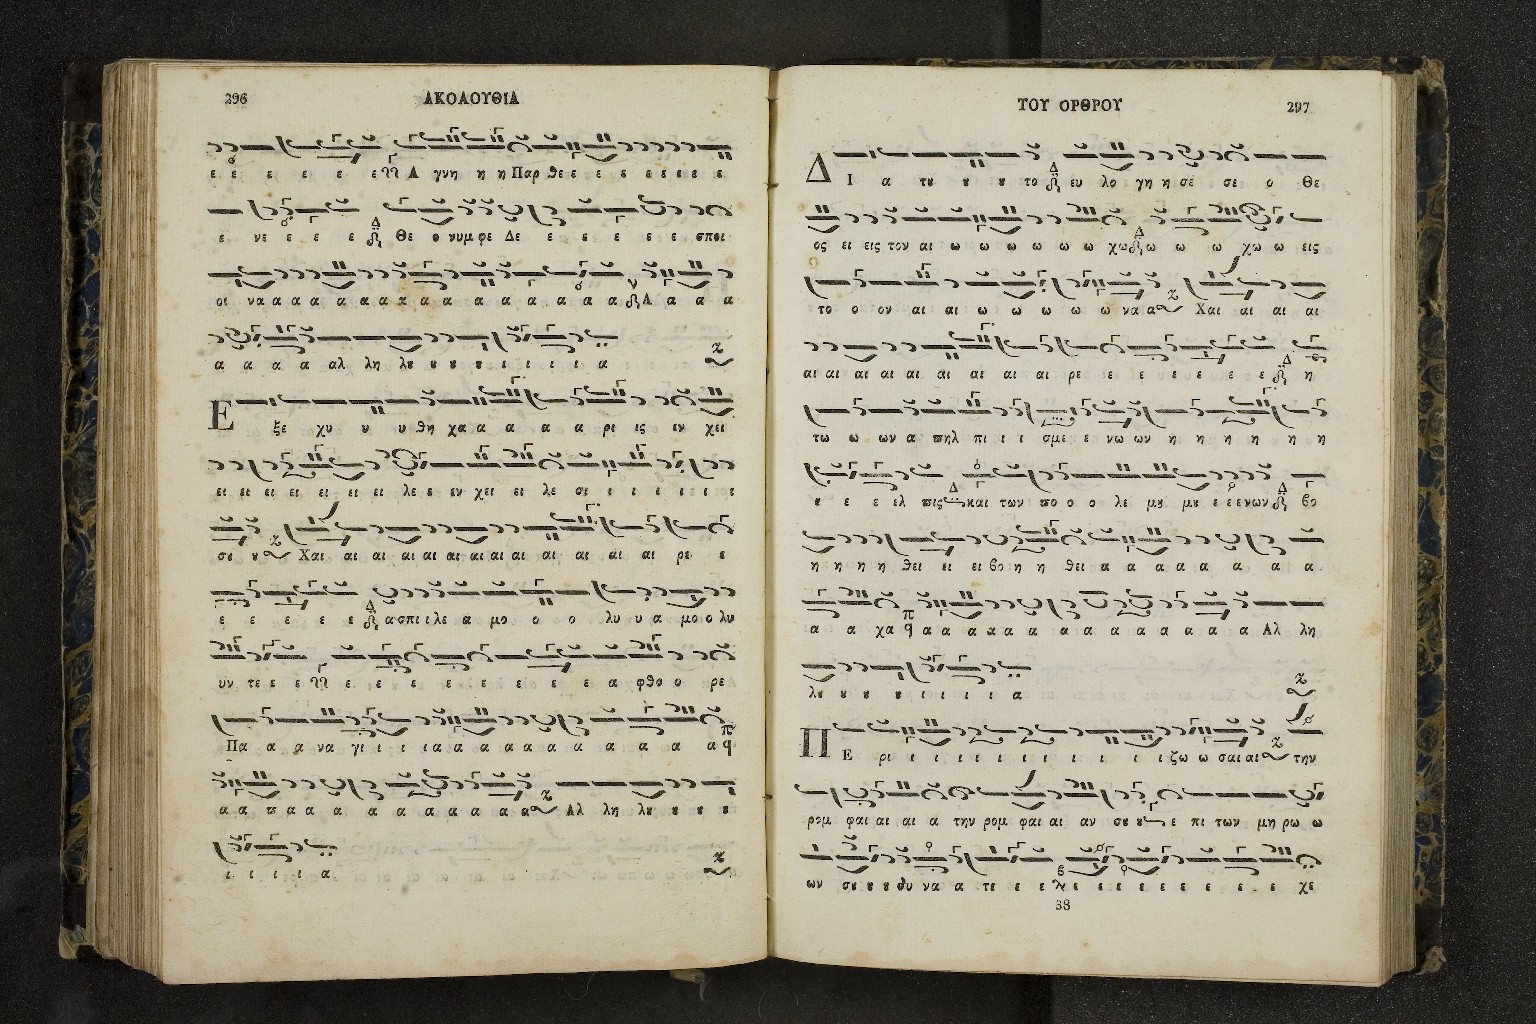 296
ΑΚΟΛΟΥΘΙΑ
ε ε ε ε ε ε Α γνη η η Παρ θε ε ε ε ε ε ε ε ε
ε νε ε ε ε ε Θε ο νυμ φε Δε ε ε ε ε ε ε σποι
οι να α α α α α α α α α α α α α α α α α Α α α α
α α α α αλ λη λȣ ȣ ȣ ȣ ι ι ι ι ι α
Ε ξε χυ υ υ θη χα α α α α α ρι ις εν χει
ει ει ει ει ει ει ει λε ε εν χει ει λε σι ι ι ι ι ι ι
σȣ ȣ Χαι αι αι αι αι αι αι αι αι αι αι αι αι ρε ε
ε ε ε ε ε ασπι ι λε α μο ο ο ο λυ υ υ α μο ο λυ
υν τε ε ε ε ε ε ε ε ε ε ε α φθο ο ρε
Πα α α να γι ι ι ια α α α α α α α α α α α
α α π α α α α α α α α α α Αλ λη λȣ ȣ ȣ ȣ
ι ι ι ι α
ΤΟΥ ΟΡΘΡΟΥ
297
Δ Ι α τȣ ȣ ȣ το ευ λο γη η σε σε ο Θε
ος ει εις τον αι ω ω ω ω ω ω ω χω ω ω ω χω ω εις
το ο ον αι αι ω ω ω ω ω να α Χαι αι αι αι
αι αι αι αι αι αι αι αι αι ρε ε ε ε ε ε ε η
τω ω ων α πηλ πι ι ι σμε ε νω ων η η η η η η
ȣ ε ε ελ πις και των πο ο ο λε μȣ μȣ ε ε ενων βο
η η η η θει ει ει βο η η θει α α α α α α α α
α α χα α α α α α α α α α α α α α α α Αλ λη
λȣ ȣ ȣ ȣ ι ι ι ι α
Π Ε ρι ι ι ι ι ι ι ι ι ι ι ι ζω ω σαι αι την
ρομ φαι αι αι α την ρομ φαι αι αν σȣ ȣ ε πι των μη ρω ω
ων σȣ ȣ ȣ δυ να α τε ε ε ε ε ε ε ε ε ε ε ε χε
38